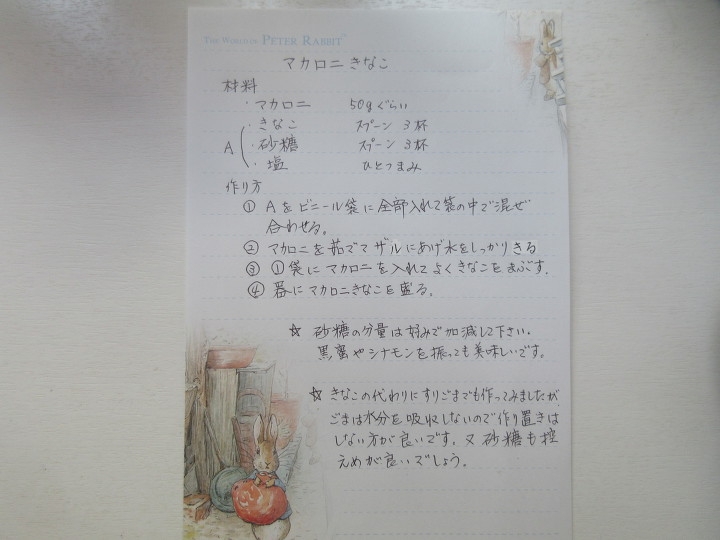 THE WORLD OF PETER RABBIT™
マカロニきなこ
材料
・マカロニ 50gぐらい
・きなこ スプーン 3杯
A ・砂糖 スプーン 3杯
・塩 ひとつまみ
作り方
① Aをビニール袋に全部入れて袋の中で混ぜ
合わせる。
② マカロニを茹でてザルにあげ水をしっかりきる
③ ①袋にマカロニを入れてよくきなこをまぶす.
④ 器にマカロニきなこを盛る.
☆ 砂糖の分量は好みで加減して下さい.
黒蜜やシナモンを振っても美味しいです。
☆ きなこの代わりにすりごまでも作ってみましたが
ごまは水分を吸収しないので作り置きは
しない方が良いです. 又 砂糖も控
えめが良いでしょう。